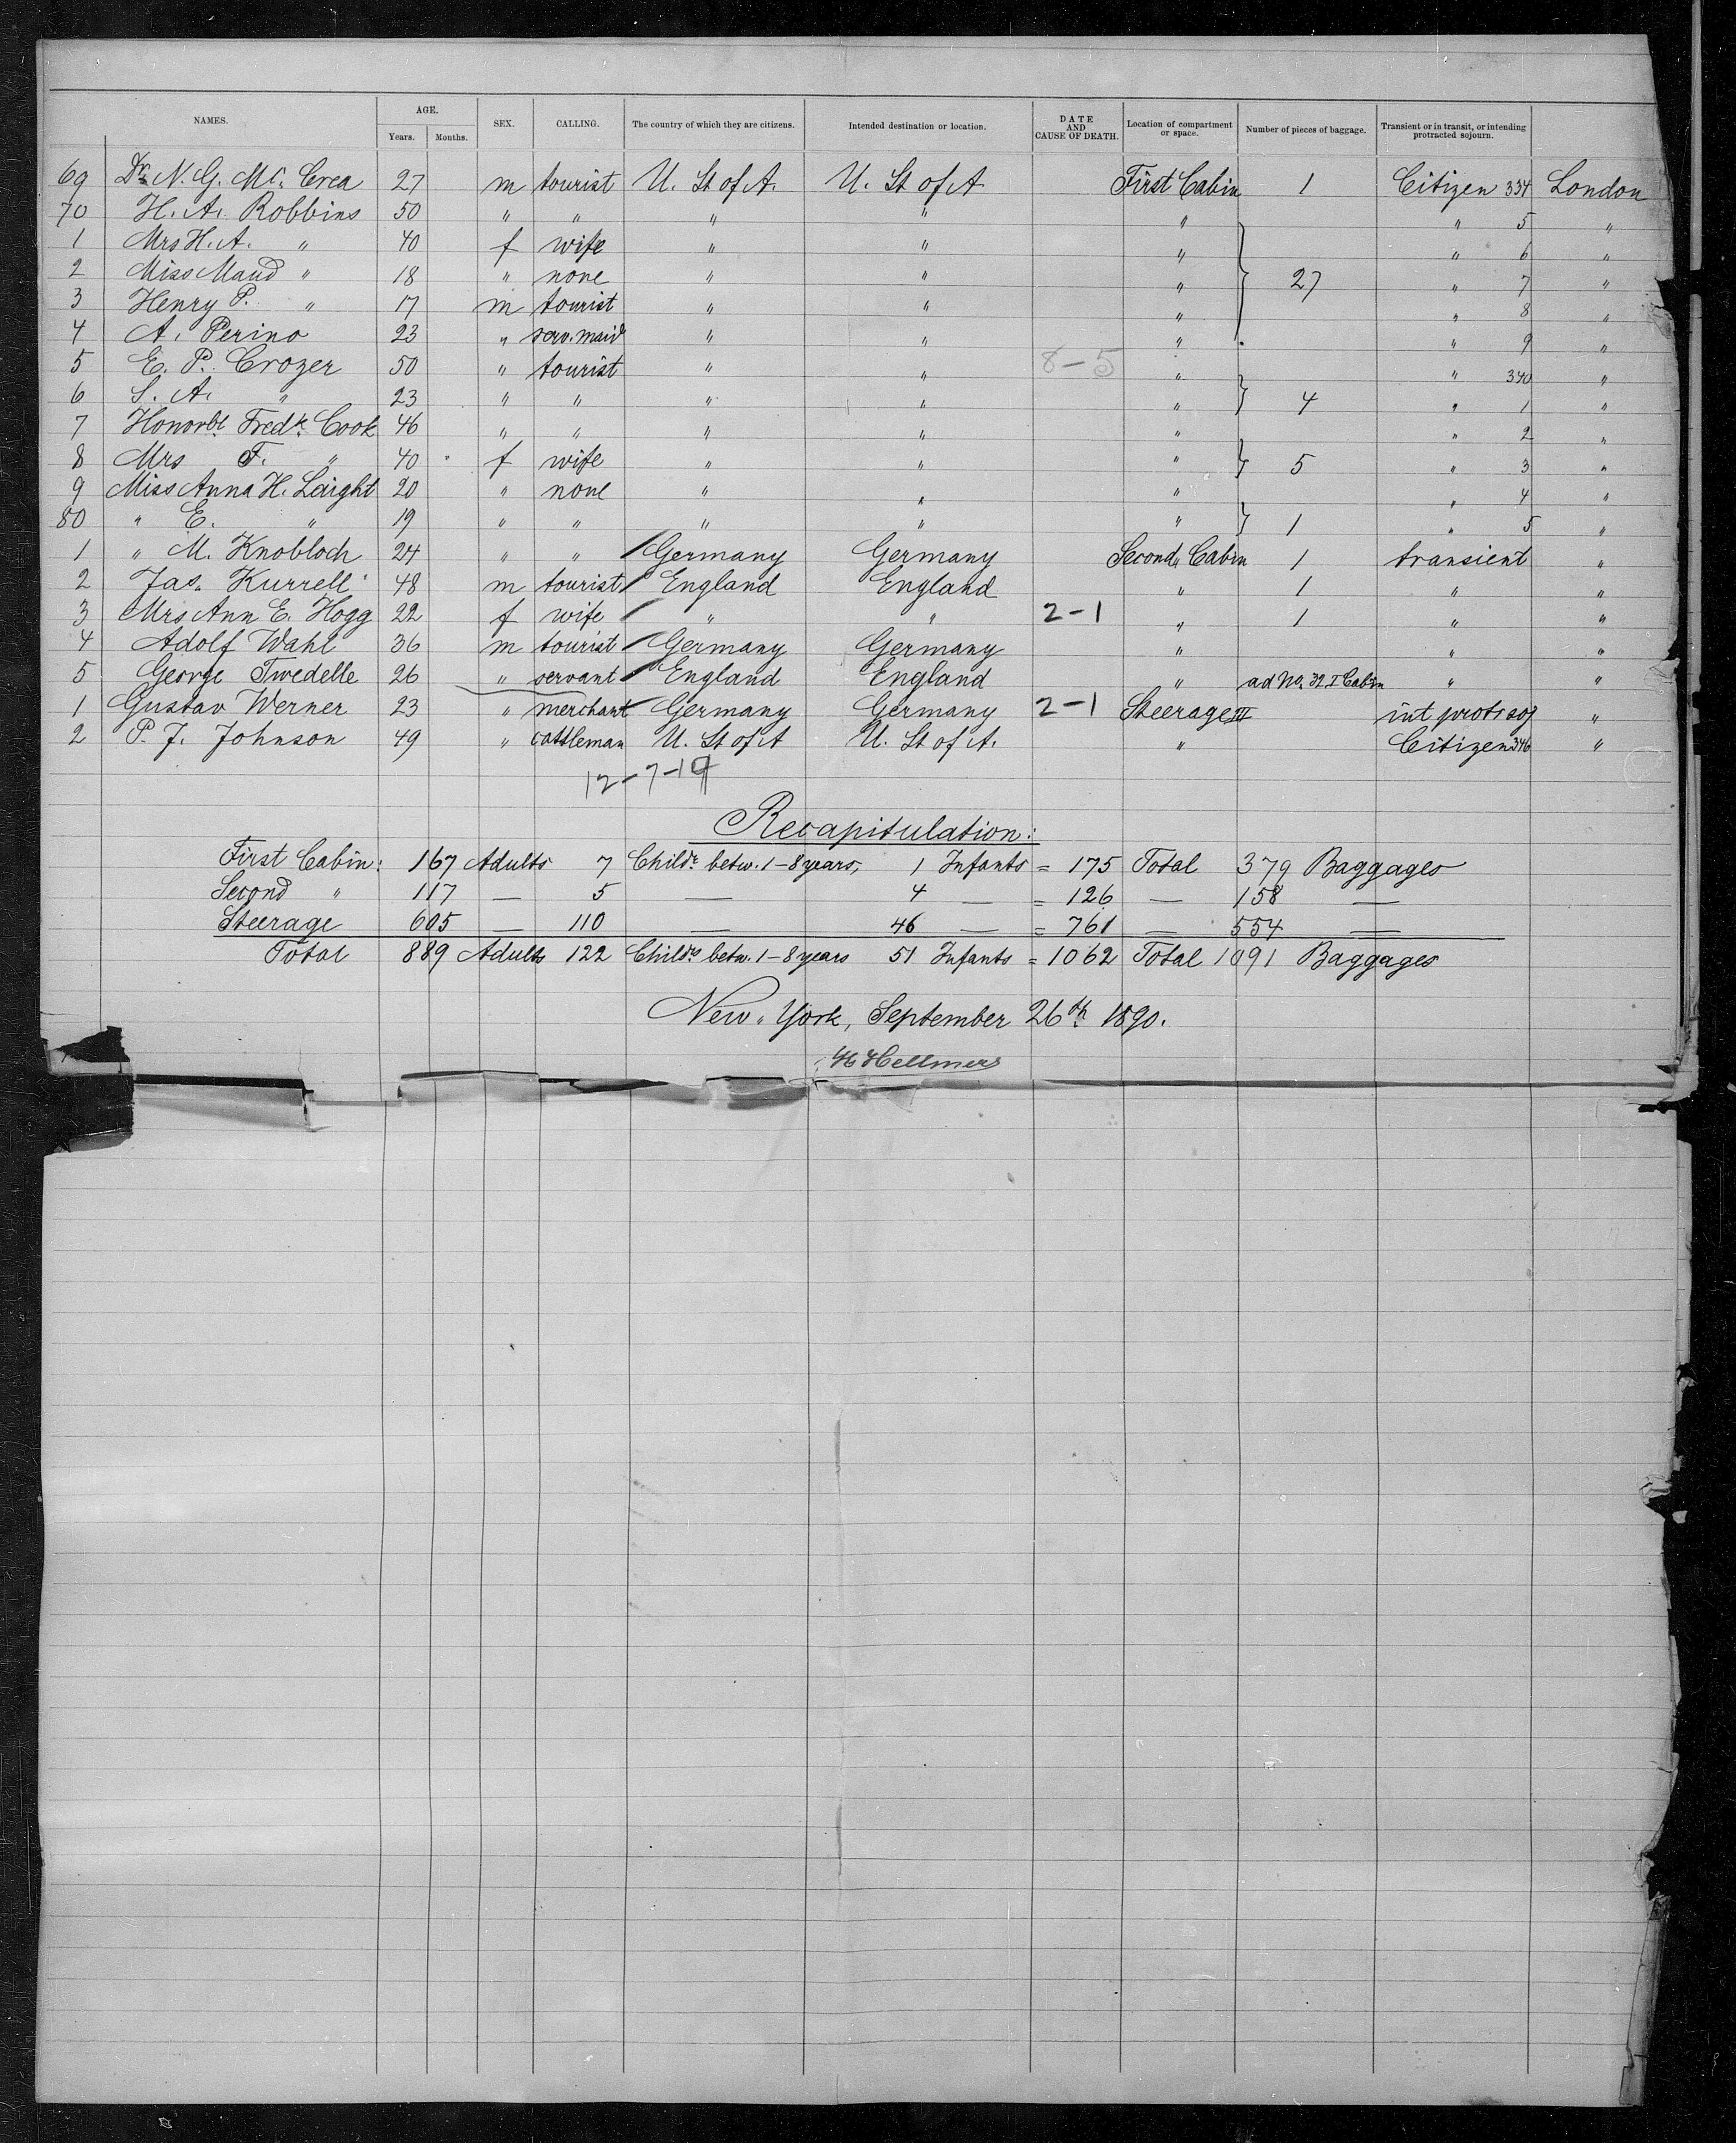 NAMES. AGE. Years. Months. SEX. CALLING. The country of which they are citizens. Intended destination or location. DATE AND CAUSE OF DEATH. Location of compartment or space. Number of pieces of baggage. Transient or in transit, or intending protracted sojourn.
69 Dr. N. G. Mc. Crea 27 m tourist U. St of A. U. St of A First Cabin 1 Citizen 334 London
70 H. A. Robbins 50 " " " " " " 5 "
1 Mrs H. A. " 40 f wife " " " " 6 "
2 Miss Maud " 18 " none " " " 27 " 7 "
3 Henry P. " 17 m tourist " " " " 8 "
4 A. Perino 23 " serv. maid " " " " 9 "
5 E. P. Crozer 50 " tourist " " 8-5 " " 340 "
6 S. A. " 23 " " " " " 4 " 1 "
7 Honorbl. Fredk. Cook 46 " " " " " " 2 "
8 Mrs F. " 40 f wife " " " 5 " 3 "
9 Miss Anna H. Laight 20 " none " " " " 4 "
80 " E. " 19 " " " " " 1 " 5 "
1 " M. Knobloch 24 " " Germany Germany Second Cabin 1 transient "
2 Jas. Kurrell 48 m tourist England England " 1 " "
3 Mrs Ann E. Hogg 22 f wife " " 2-1 " 1 " "
4 Adolf Wahl 36 m tourist Germany Germany " " "
5 George Twedelle 26 " servant England England " ad No. I Cabin " "
1 Gustav Werner 23 " merchant Germany Germany 2-1 Steerage III int prot soj "
2 P. J. Johnson 49 " cattleman U. St of A U. St of A. " Citizen 346 "
12-7-19
Recapitulation:
First Cabin: 167 Adults 7 Childr. betw. 1-8 years, 1 Infants = 175 Total 379 Baggages
Second " 117 — 5 — 4 — = 126 — 158 —
Steerage 605 — 110 — 46 — = 761 — 554 —
Total 889 Adults 122 Childr. betw. 1-8 years 51 Infants = 1062 Total 1091 Baggages
New-York, September 26th 1890.
H Hellmers